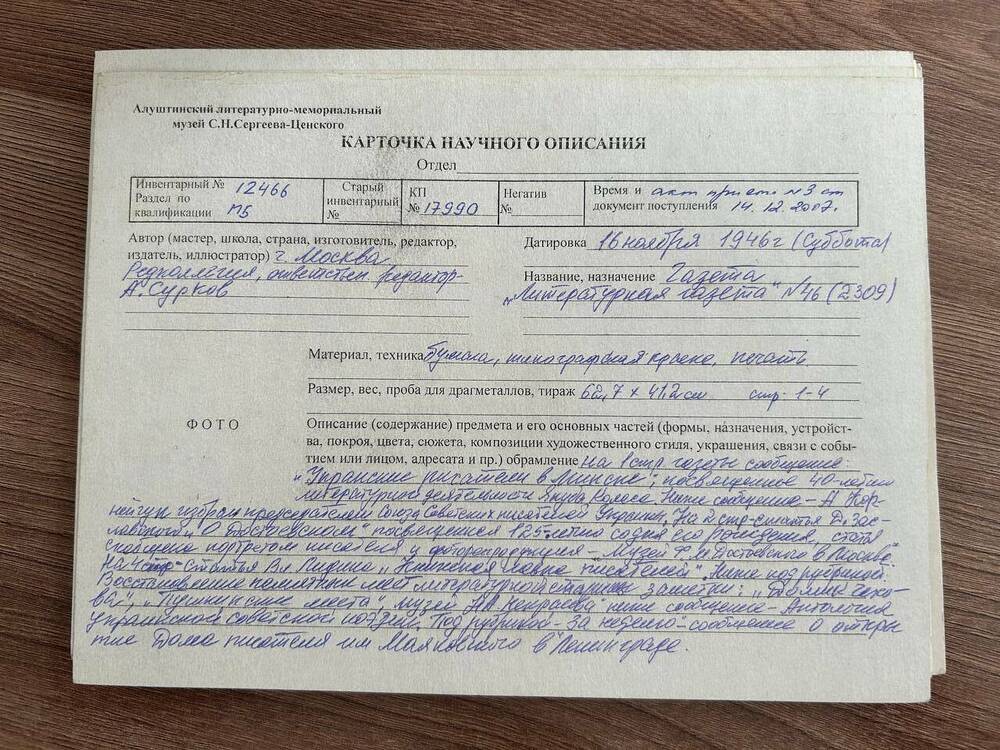 Алуштинский литературно-мемориальный
музей С.Н.Сергеева-Ценского
КАРТОЧКА НАУЧНОГО ОПИСАНИЯ
Отдел
Инвентарный № 12466
Раздел по
квалификации МБ
Старый
инвентарный
№
КП
№ 17990
Негатив
№
Время и акт прием №3 от
документ поступления 14.12.2007г.
Автор (мастер, школа, страна, изготовитель, редактор,
издатель, иллюстратор) г. Москва
Редколлегия, ответствен. редактор-
А. Сурков
Датировка 16 ноября 1946г (Суббота)
Название, назначение Газета
„Литературная газета" №46 (2309)
Материал, техника бумага, типографская краска, печать.
Размер, вес, проба для драгметаллов, тираж 62,7 х 41,2 см стр. 1-4
ФОТО
Описание (содержание) предмета и его основных частей (формы, назначения, устройст-
ва, покроя, цвета, сюжета, композиции художественного стиля, украшения, связи с собы-
тием или лицом, адресата и пр.) обрамление на 1 стр газеты сообщение:
„Украинские писатели в Минске", посвященное 40-летию
литературной деятельности Якуба Коласа. Ниже сообщение - А. Кор-
нейчук избран председателем Союза Советских писателей Украины. На 2 стр-статья Д. Зас-
лавского „О Достоевском" посвященная 125-летию со дня его рождения, статья
снабжена портретом писателя и фоторепродукция - Музей Ф. М. Достоевского в Москве.
На 4 стр- Статья Вл. Лидина „Книжная лавка писателей". Ниже под рубрикой:
Восстановление памятных мест литературной заметки:
ва", „Пушкинские места", музей Н.А. Некрасова ниже сообщение - Антология
украинской советской поэзии. Под рубрикой - За неделю - сообщение о откры
тие Дома писателя им Маяковского в Ленинграде.